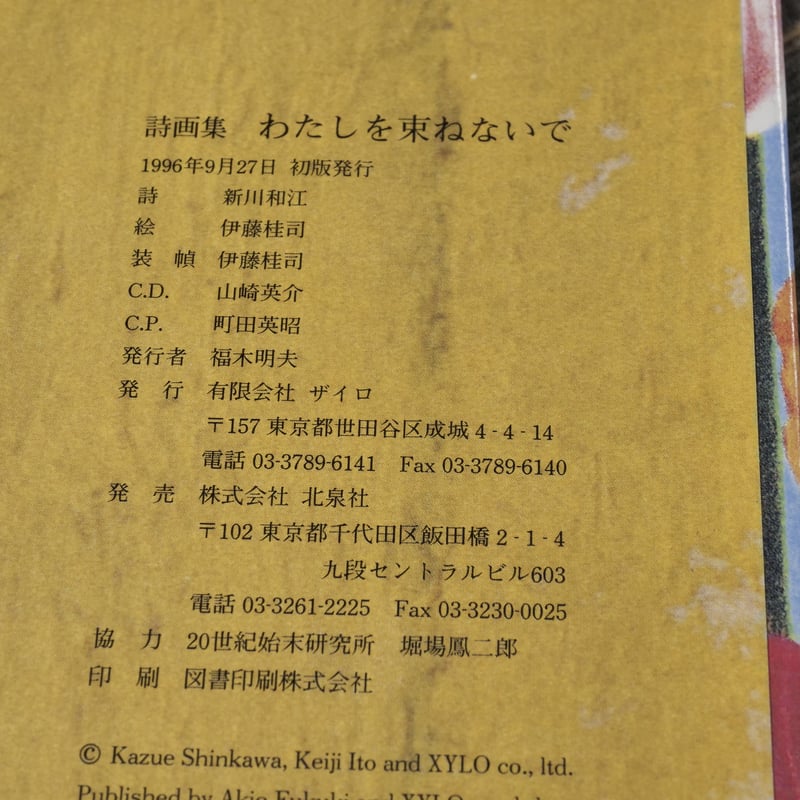 詩画集 わたしを束ねないで
1996年9月27日 初版発行
詩 新川和江
絵 伊藤桂司
装 幀 伊藤桂司
C.D. 山崎英介
C.P. 町田英昭
発行者 福木明夫
発 行 有限会社 ザイロ
〒157 東京都世田谷区成城 4 - 4 - 14
電話 03-3789-6141 Fax 03-3789-6140
発 売 株式会社 北泉社
〒102 東京都千代田区飯田橋 2 - 1 - 4
九段セントラルビル603
電話 03-3261-2225 Fax 03-3230-0025
協 力 20世紀始末研究所 堀場鳳二郎
印 刷 図書印刷株式会社
© Kazue Shinkawa, Keiji Ito and XYLO co., ltd.
Published by Akio Fukuki and XYLO